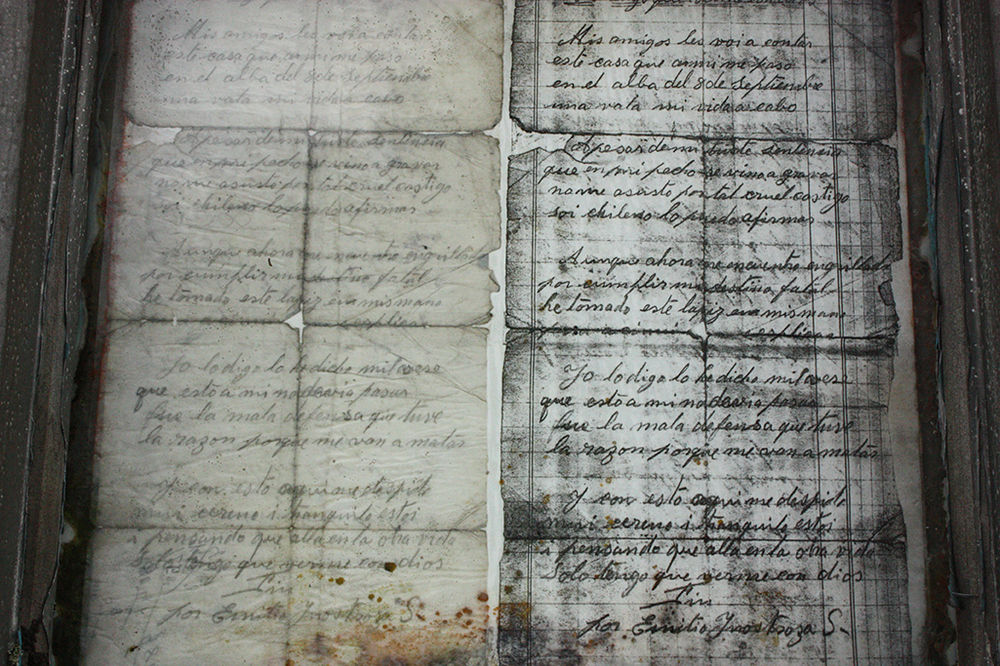 Mis amigos les voi a contar
este casa que ami me paso
en el alba del 8 de Septiembre
una vala mi vida a cabo
A pesar de mi triste sentencia
que en mi pecho se vino a gravar
no me asusto por tal cruel castigo
soi chileno lo puedo afirmar
Aunque ahora me encuentro engrillado
por cumplir mi destino fatal
he tomado este lapiz en mis mano
esplicar
Yo lo digo lo he dicho mil vese
que esto a mi no pasar
fue la mala defensa que tuve
la razon porque me van a matar
Y con esto aqui me despido
mui cereno i tranquilo estoi
i pensando que alla en la otra vida
Solo tengo que verme con dios
Fin
por Emilio Inostroza S-
Mis amigos les voi a contar
este casa que ami me paso
en el alba del 8 de Septiembre
una vala mi vida a cabo
A pesar de mi triste sentencia
que en mi pecho se vino a gravar
no me asusto por tal cruel castigo
soi chileno lo puedo afirmar
Aunque ahora me encuentro engrillado
por cumplir mi destino fatal
he tomado este lapiz en mis mano
esplicar
Yo lo digo lo he dicho mil vese
que esto a mi no pasar
fue la mala defensa que tuve
la razon porque me van a matar
Y con esto aqui me despido
mui cereno i tranquilo estoi
i pensando que alla en la otra vida
Solo tengo que verme con dios
Fin
por Emilio Inostroza S-